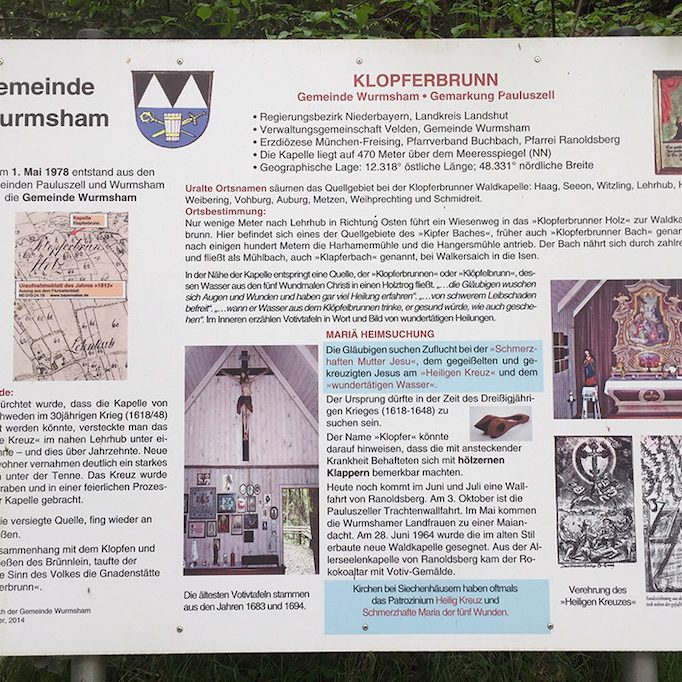 emeinde
urmsham
m 1. Mai 1978 entstand aus den
einden Pauluszell und Wurmsham
die Gemeinde Wurmsham
Kapelle
Klopferbrunn
Uraufnahmeblatt des Jahres »1812«
Lehrhub
de:
rchtet wurde, dass die Kapelle von
hweden im 30jährigen Krieg (1618/48)
t werden könnte, versteckte man das
e Kreuz« im nahen Lehrhub unter ei-
nne – und dies über Jahrzehnte. Neue
wohner vernahmen deutlich ein starkes
n unter der Tenne. Das Kreuz wurde
raben und in einer feierlichen Prozes-
r Kapelle gebracht.
ie versiegte Quelle, fing wieder an
ßen.
sammenhang mit dem Klopfen und
ießen des Brünnlein, taufte der
e Sinn des Volkes die Gnadenstätte
erbrunn«.
ch der Gemeinde Wurmsham
er, 2014
KLOPFERBRUNN
Gemeinde Wurmsham • Gemarkung Pauluszell
• Regierungsbezirk Niederbayern, Landkreis Landshut
• Verwaltungsgemeinschaft Velden, Gemeinde Wurmsham
• Erzdiözese München-Freising, Pfarrverband Buchbach, Pfarrei Ranoldsberg
• Die Kapelle liegt auf 470 Meter über dem Meeresspiegel (NN)
• Geographische Lage: 12.318° östliche Länge; 48.331° nördliche Breite
Uralte Ortsnamen säumen das Quellgebiet bei der Klopferbrunner Waldkapelle: Haag, Seeon, Witzling, Lehrhub, H
Weibering, Vohburg, Auburg, Metzen, Weihprechting und Schmidreit.
Ortsbestimmung:
Nur wenige Meter nach Lehrhub in Richtung Osten führt ein Wiesenweg in das »Klopferbrunner Holz« zur Waldka
brunn. Hier befindet sich eines der Quellgebiete des »Kipfer Baches«, früher auch »Klopferbrunner Bach« genan
nach einigen hundert Metern die Harhamermühle und die Hangersmühle antrieb. Der Bach nährt sich durch zahlre
und fließt als Mühlbach, auch »Klapferbach« genannt, bei Walkersaich in die Isen.
In der Nähe der Kapelle entspringt eine Quelle, der »Klopferbrunnen« oder »Klöpfelbrunn«, des-
sen Wasser aus den fünf Wundmalen Christi in einen Holztrog fließt. „…die Gläubigen wuschen
sich Augen und Wunden und haben gar viel Heilung erfahren“. „…von schwerem Leibschaden
befreit“. „…wann er Wasser aus dem Klöpfelbrunnen trinke, er gesund würde, wie auch gesche-
hen“. Im Inneren erzählen Votivtafeln in Wort und Bild von wundertätigen Heilungen.
MARIÄ HEIMSUCHUNG
Die Gläubigen suchen Zuflucht bei der »Schmerz-
haften Mutter Jesu«, dem gegeißelten und ge-
kreuzigten Jesus am »Heiligen Kreuz« und dem
»wundertätigen Wasser«.
Der Ursprung dürfte in der Zeit des Dreißigjähri-
gen Krieges (1618-1648) zu
suchen sein.
Der Name »Klopfer« könnte
darauf hinweisen, dass die mit ansteckender
Krankheit Behafteten sich mit hölzernen
Klappern bemerkbar machten.
Heute noch kommt im Juni und Juli eine Wall-
fahrt von Ranoldsberg. Am 3. Oktober ist die
Pauluszeller Trachtenwallfahrt. Im Mai kommen
die Wurmshamer Landfrauen zu einer Maian-
dacht. Am 28. Juni 1964 wurde die im alten Stil
erbaute neue Waldkapelle gesegnet. Aus der Al-
lerseelenkapelle von Ranoldsberg kam der Ro-
kokoaltar mit Votiv-Gemälde.
Kirchen bei Siechenhäusern haben oftmals
das Patrozinium Heilig Kreuz und
Schmerzhafte Maria der fünf Wunden.
Die ältesten Votivtafeln stammen
aus den Jahren 1683 und 1694.
Verehrung des
»Heiligen Kreuzes«